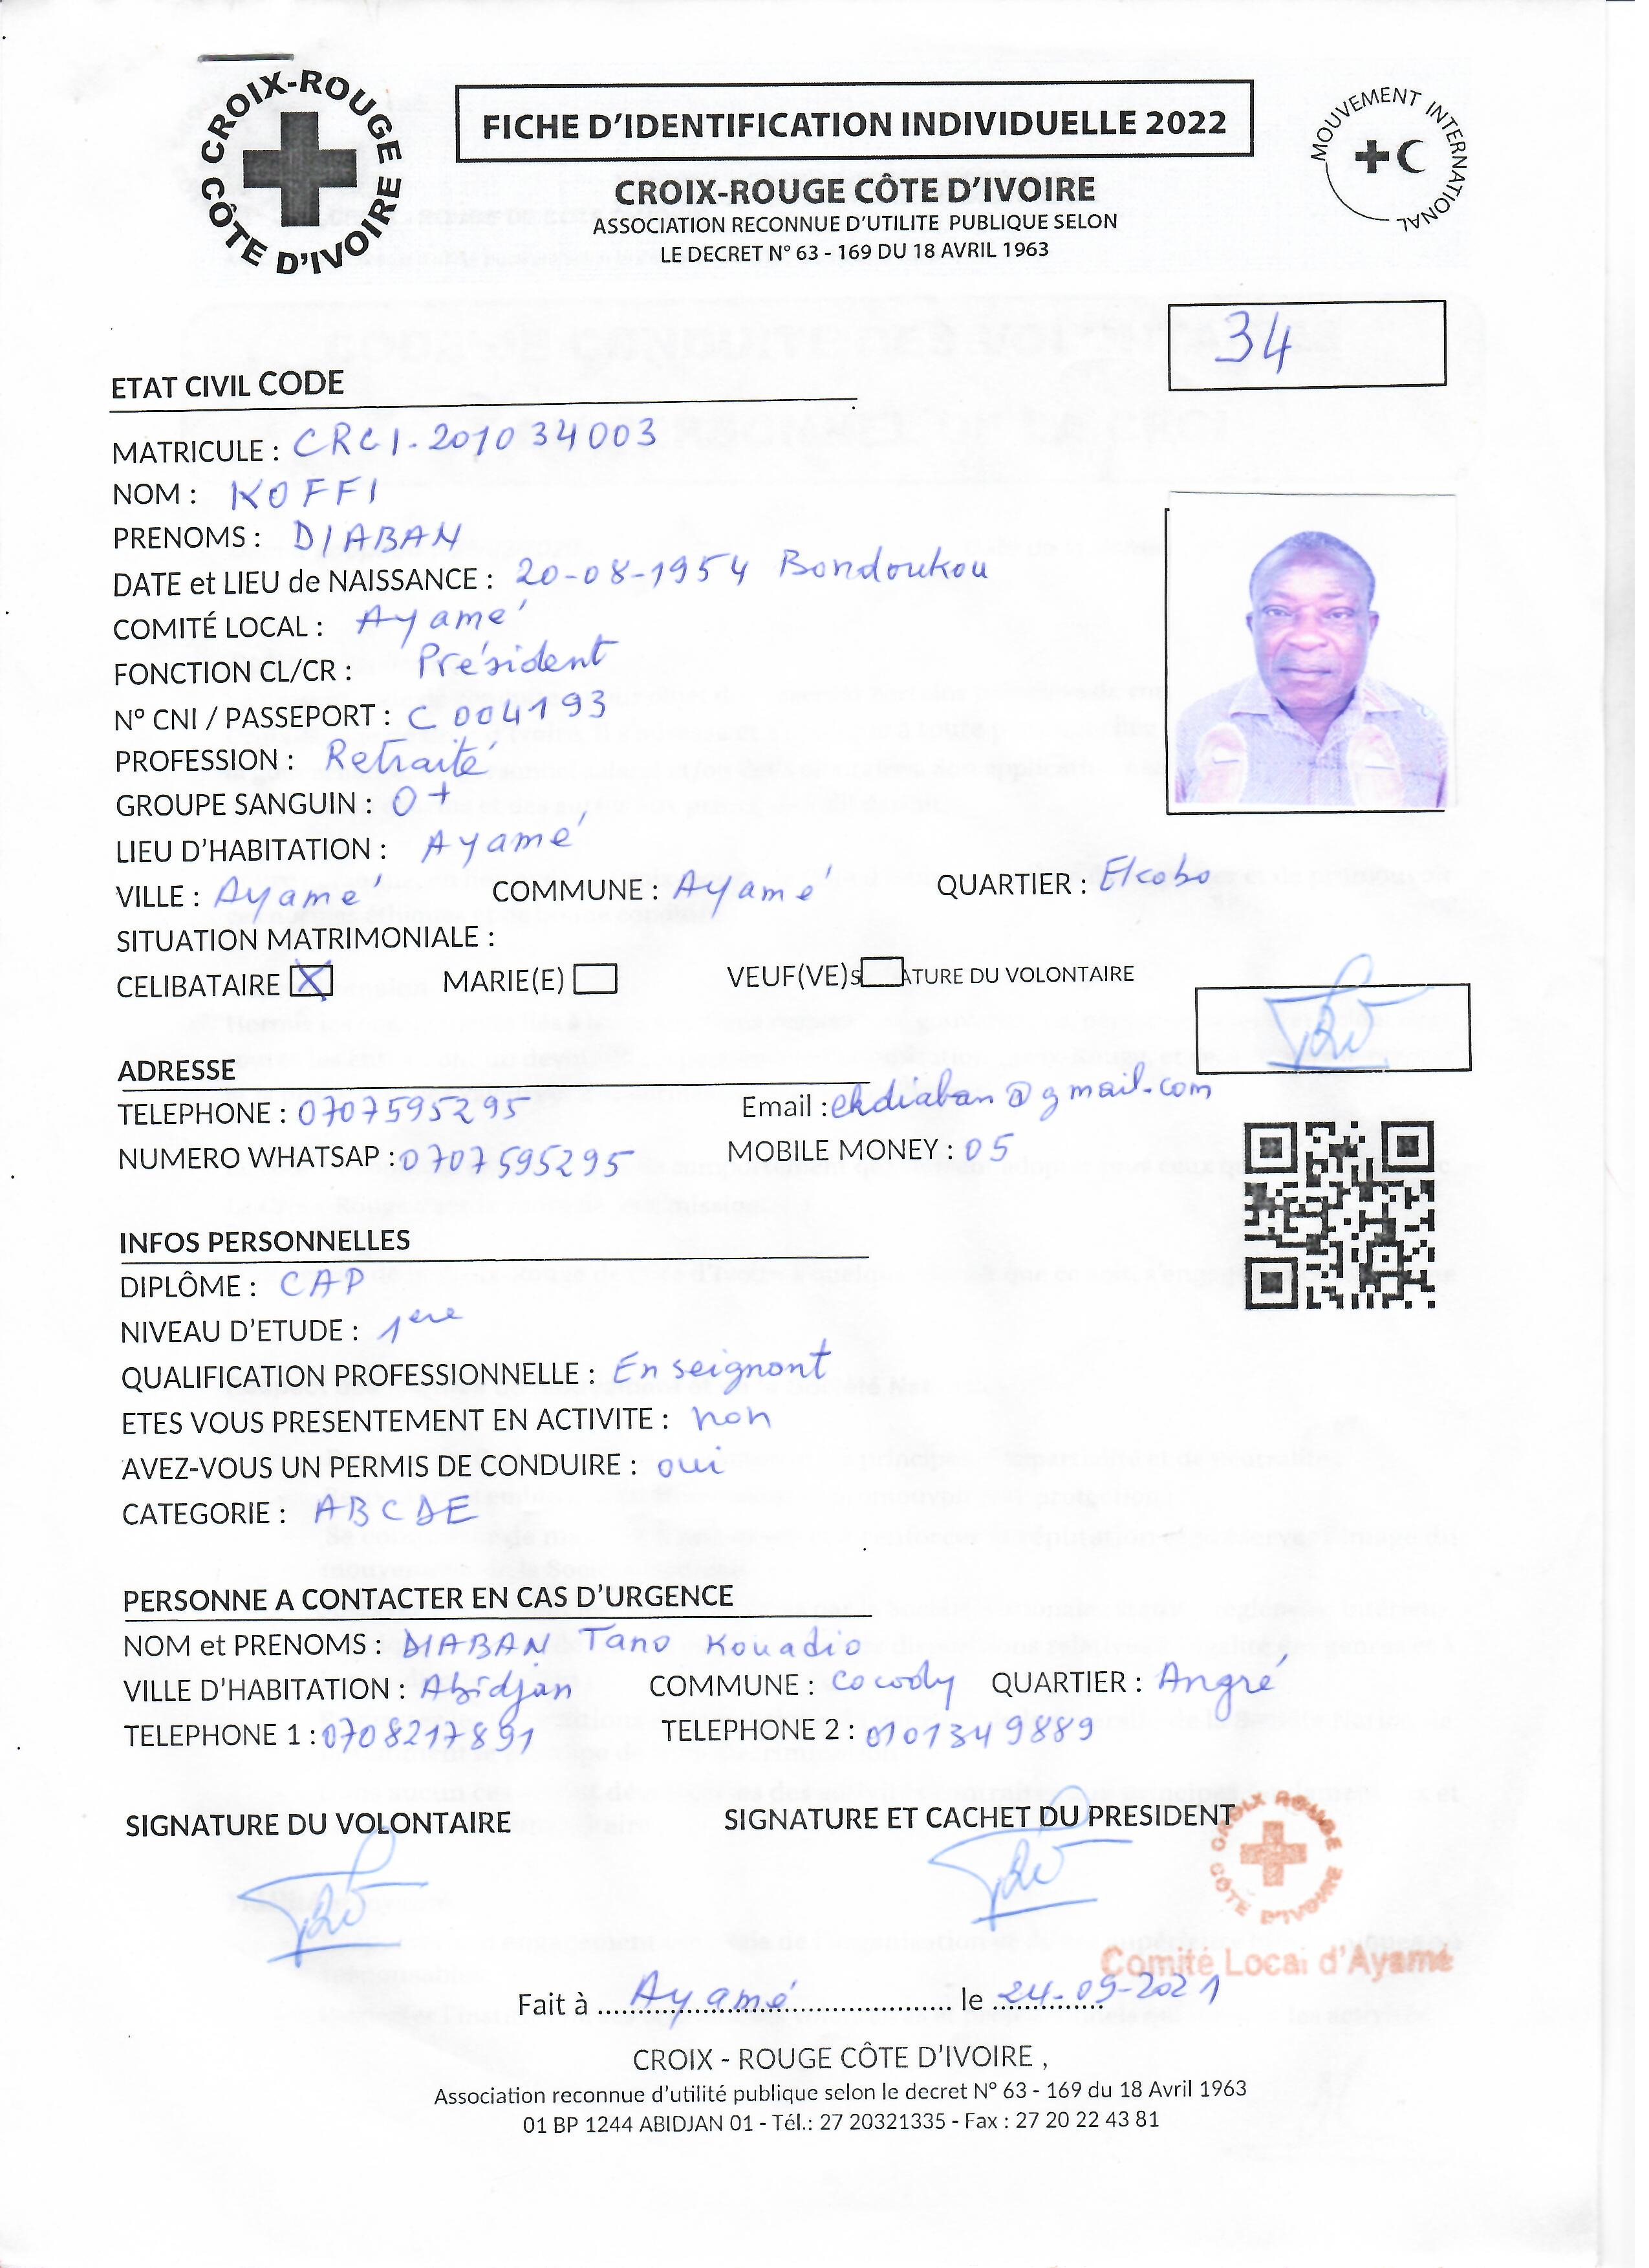 CROIX-ROUGE CÔTE D'IVOIRE
FICHE D'IDENTIFICATION INDIVIDUELLE 2022
MOUVEMENT INTERNATIONAL
CROIX-ROUGE CÔTE D'IVOIRE
ASSOCIATION RECONNUE D'UTILITE PUBLIQUE SELON
LE DECRET N° 63 - 169 DU 18 AVRIL 1963
34
ETAT CIVIL CODE
MATRICULE : CRCI-201034003
NOM : KOFFI
PRENOMS : DIABAN
DATE et LIEU de NAISSANCE : 20-08-1954 Bondoukou
COMITÉ LOCAL : Ayamé
FONCTION CL/CR : Président
N° CNI / PASSEPORT : C 004193
PROFESSION : Retraité
GROUPE SANGUIN : O+
LIEU D'HABITATION : Ayamé
VILLE : Ayamé COMMUNE : Ayamé QUARTIER :
SITUATION MATRIMONIALE :
CELIBATAIRE X MARIE(E) VEUF(VE)s ATURE DU VOLONTAIRE
ADRESSE
TELEPHONE : 0707595295 Email : ekdiaban@gmail.com
NUMERO WHATSAP : 0707595295 MOBILE MONEY : 05
INFOS PERSONNELLES
DIPLÔME : CAP
NIVEAU D'ETUDE : 1ere
QUALIFICATION PROFESSIONNELLE : Enseignont
ETES VOUS PRESENTEMENT EN ACTIVITE : non
AVEZ-VOUS UN PERMIS DE CONDUIRE : oui
CATEGORIE : ABCDE
PERSONNE A CONTACTER EN CAS D'URGENCE
NOM et PRENOMS : DIABAN Tano Kouadio
VILLE D'HABITATION : Abidjan COMMUNE : Cocody QUARTIER : Angré
TELEPHONE 1 : 0708217891 TELEPHONE 2 : 0101349889
SIGNATURE DU VOLONTAIRE SIGNATURE ET CACHET DU PRESIDENT
CROIX ROUGE CÔTE D'IVOIRE
Comité Local d'Ayamé
Fait à Ayamé le 24-09-2021
CROIX - ROUGE CÔTE D'IVOIRE ,
Association reconnue d'utilité publique selon le decret N° 63 - 169 du 18 Avril 1963
01 BP 1244 ABIDJAN 01 - Tél.: 27 20321335 - Fax : 27 20 22 43 81